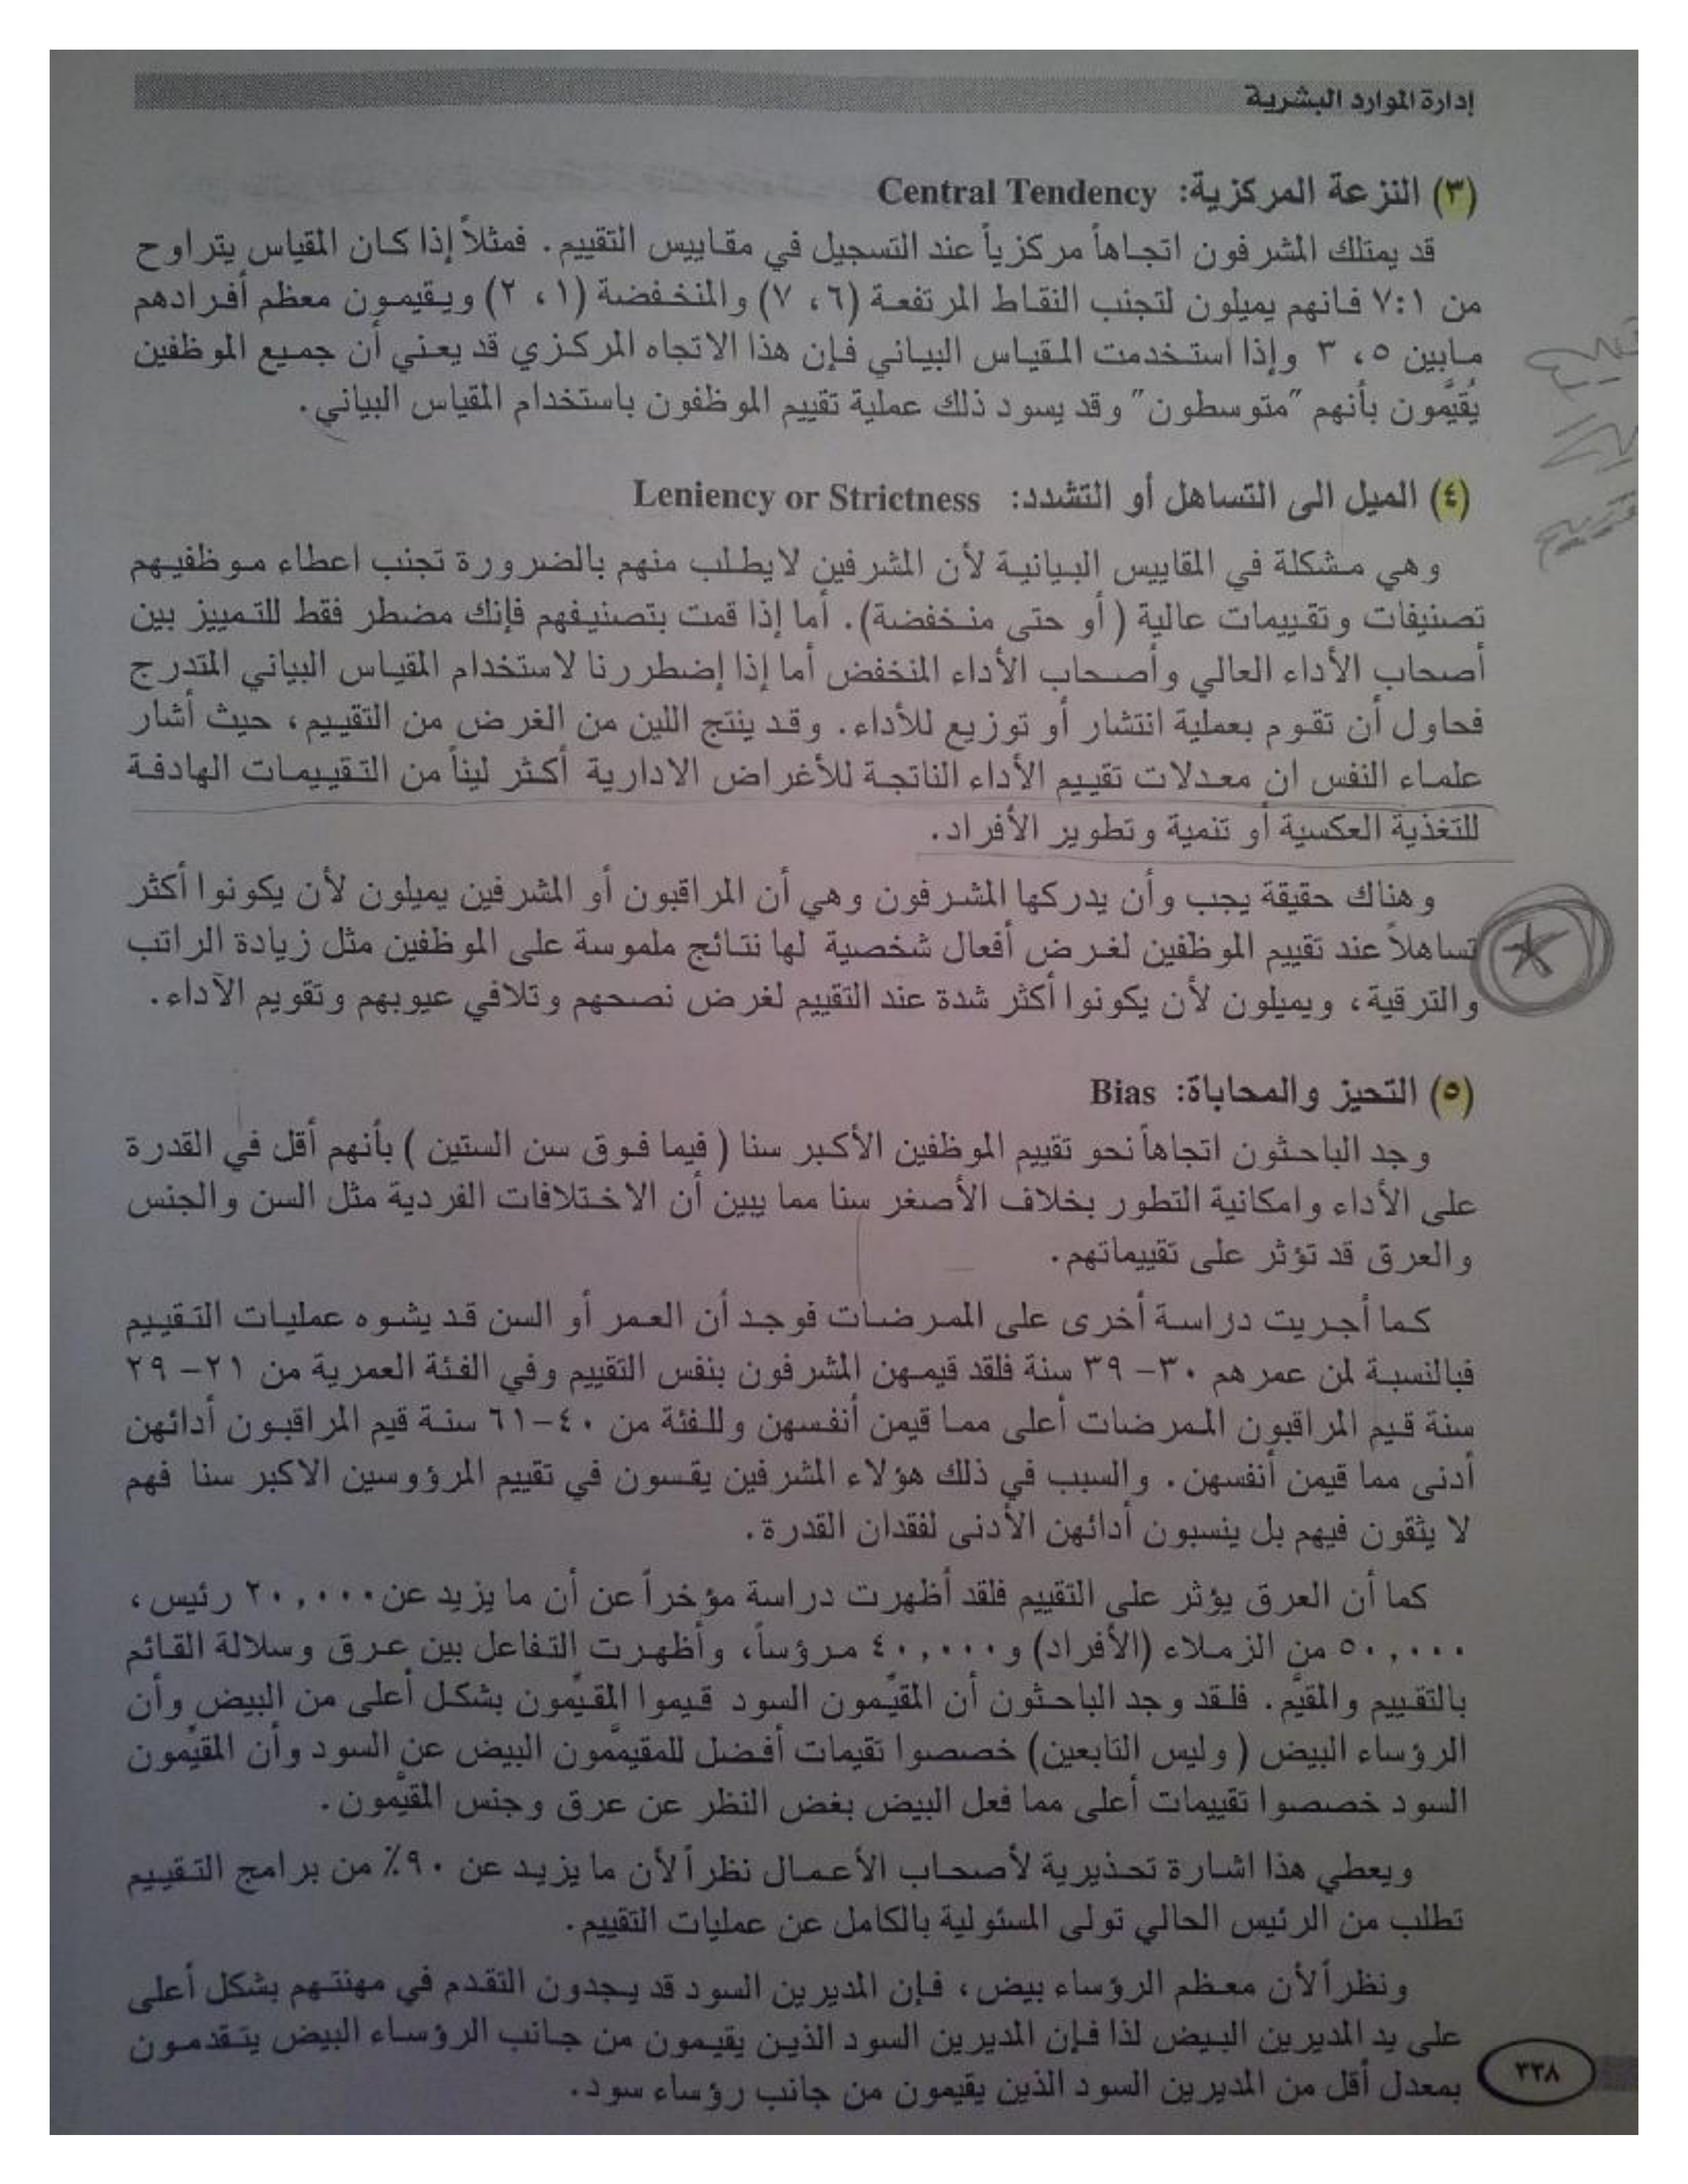 إدارة الموارد البشرية
(٣) النزعة المركزية: Central Tendency
قد يمتلك المشرفون اتجاهاً مركزياً عند التسجيل في مقاييس التقييم. فمثلاً إذا كان المقياس يتراوح
من ٧:١ فانهم يميلون لتجنب النقاط المرتفعة (٦، ٧) والمنخفضة (١، ٢) ويقيمون معظم أفرادهم
مابين ٥، ٣ وإذا استخدمت المقياس البياني فإن هذا الاتجاه المركزي قد يعني أن جميع الموظفين
يُقيَّمون بأنهم "متوسطون" وقد يسود ذلك عملية تقييم الموظفون باستخدام المقياس البياني.
(٤) الميل الى التساهل أو التشدد: Leniency or Strictness
وهي مشكلة في المقاييس البيانية لأن المشرفين لايطلب منهم بالضرورة تجنب اعطاء موظفيهم
تصنيفات وتقييمات عالية ( أو حتى منخفضة). أما إذا قمت بتصنيفهم فإنك مضطر فقط للتمييز بين
أصحاب الأداء العالي وأصحاب الأداء المنخفض أما إذا إضطررنا لاستخدام المقياس البياني المتدرج
فحاول أن تقوم بعملية انتشار أو توزيع للأداء. وقد ينتج اللين من الغرض من التقييم، حيث أشار
علماء النفس ان معدلات تقييم الأداء الناتجة للأغراض الادارية أكثر ليناً من التقييمات الهادفة
للتغذية العكسية أو تنمية وتطوير الأفراد.
وهناك حقيقة يجب وأن يدركها المشرفون وهي أن المراقبون أو المشرفين يميلون لأن يكونوا أكثر
تساهلاً عند تقييم الموظفين لغرض أفعال شخصية لها نتائج ملموسة على الموظفين مثل زيادة الراتب
والترقية، ويميلون لأن يكونوا أكثر شدة عند التقييم لغرض نصحهم وتلافي عيوبهم وتقويم الآداء.
(٥) التحيز والمحاباة: Bias
وجد الباحثون اتجاهاً نحو تقييم الموظفين الأكبر سنا ( فيما فوق سن الستين ) بأنهم أقل في القدرة
على الأداء وامكانية التطور بخلاف الأصغر سنا مما يبين أن الاختلافات الفردية مثل السن والجنس
والعرق قد تؤثر على تقييماتهم.
كما أجريت دراسة أخرى على الممرضات فوجد أن العمر أو السن قد يشوه عمليات التقييم
فبالنسبة لمن عمرهم ٣٠- ٣٩ سنة فلقد قيمهن المشرفون بنفس التقييم وفي الفئة العمرية من ٢١- ٢٩
سنة قيم المراقبون الممرضات أعلى مما قيمن أنفسهن وللفئة من ٤٠-٦١ سنة قيم المراقبون أدائهن
أدنى مما قيمن أنفسهن. والسبب في ذلك هؤلاء المشرفين يقسون في تقييم المرؤوسين الاكبر سنا فهم
لا يثقون فيهم بل ينسبون أدائهن الأدنى لفقدان القدرة.
كما أن العرق يؤثر على التقييم فلقد أظهرت دراسة مؤخراً عن أن ما يزيد عن ٢٠,٠٠٠ رئيس،
٥٠,٠٠٠ من الزملاء (الأفراد) و٤٠,٠٠٠ مرؤساً، وأظهرت التفاعل بين عرق وسلالة القائم
بالتقييم والمقيَّم. فلقد وجد الباحثون أن المقيِّمون السود قيموا المقيِّمون بشكل أعلى من البيض وأن
الرؤساء البيض ( وليس التابعين) خصصوا تقيمات أفضل للمقيمَّمون البيض عن السود وأن المقيِّمون
السود خصصوا تقييمات أعلى مما فعل البيض بغض النظر عن عرق وجنس المقيَّمون.
ويعطي هذا اشارة تحذيرية لأصحاب الأعمال نظراً لأن ما يزيد عن ٩٠٪ من برامج التقييم
تطلب من الرئيس الحالي تولى المسئولية بالكامل عن عمليات التقييم.
ونظراً لأن معظم الرؤساء بيض، فإن المديرين السود قد يجدون التقدم في مهنتهم بشكل أعلى
على يد المديرين البيض لذا فإن المديرين السود الذين يقيمون من جانب الرؤساء البيض يتقدمون
بمعدل أقل من المديرين السود الذين يقيمون من جانب رؤساء سود.
٣٣٨